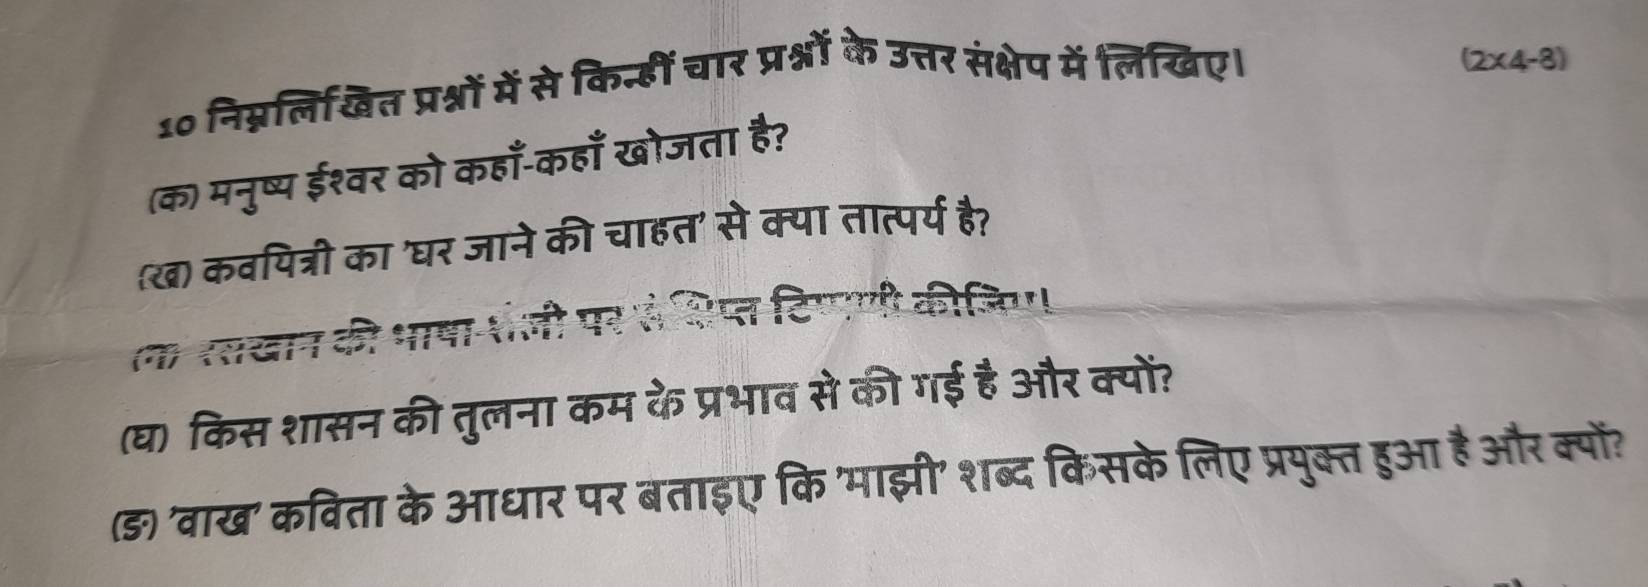 10 निम्नलिखित प्रश्नों में से किन्हीं चार प्रश्नों के उत्तर संक्षेप में लिखिए। (2x4-8)
(क) मनुष्य ईश्वर को कहाँ-कहाँ खोजता है?
(ख) कवयित्री का 'घर जाने की चाहत' से क्या तात्पर्य है?
(ग) रसखान की भाषा शैली पर संक्षिप्त टिप्पणी कीजिए।
(घ) किस शासन की तुलना कम के प्रभाव से की गई है और क्यों?
(ङ) 'वाख' कविता के आधार पर बताइए कि 'माझी' शब्द किसके लिए प्रयुक्त हुआ है और क्यों?